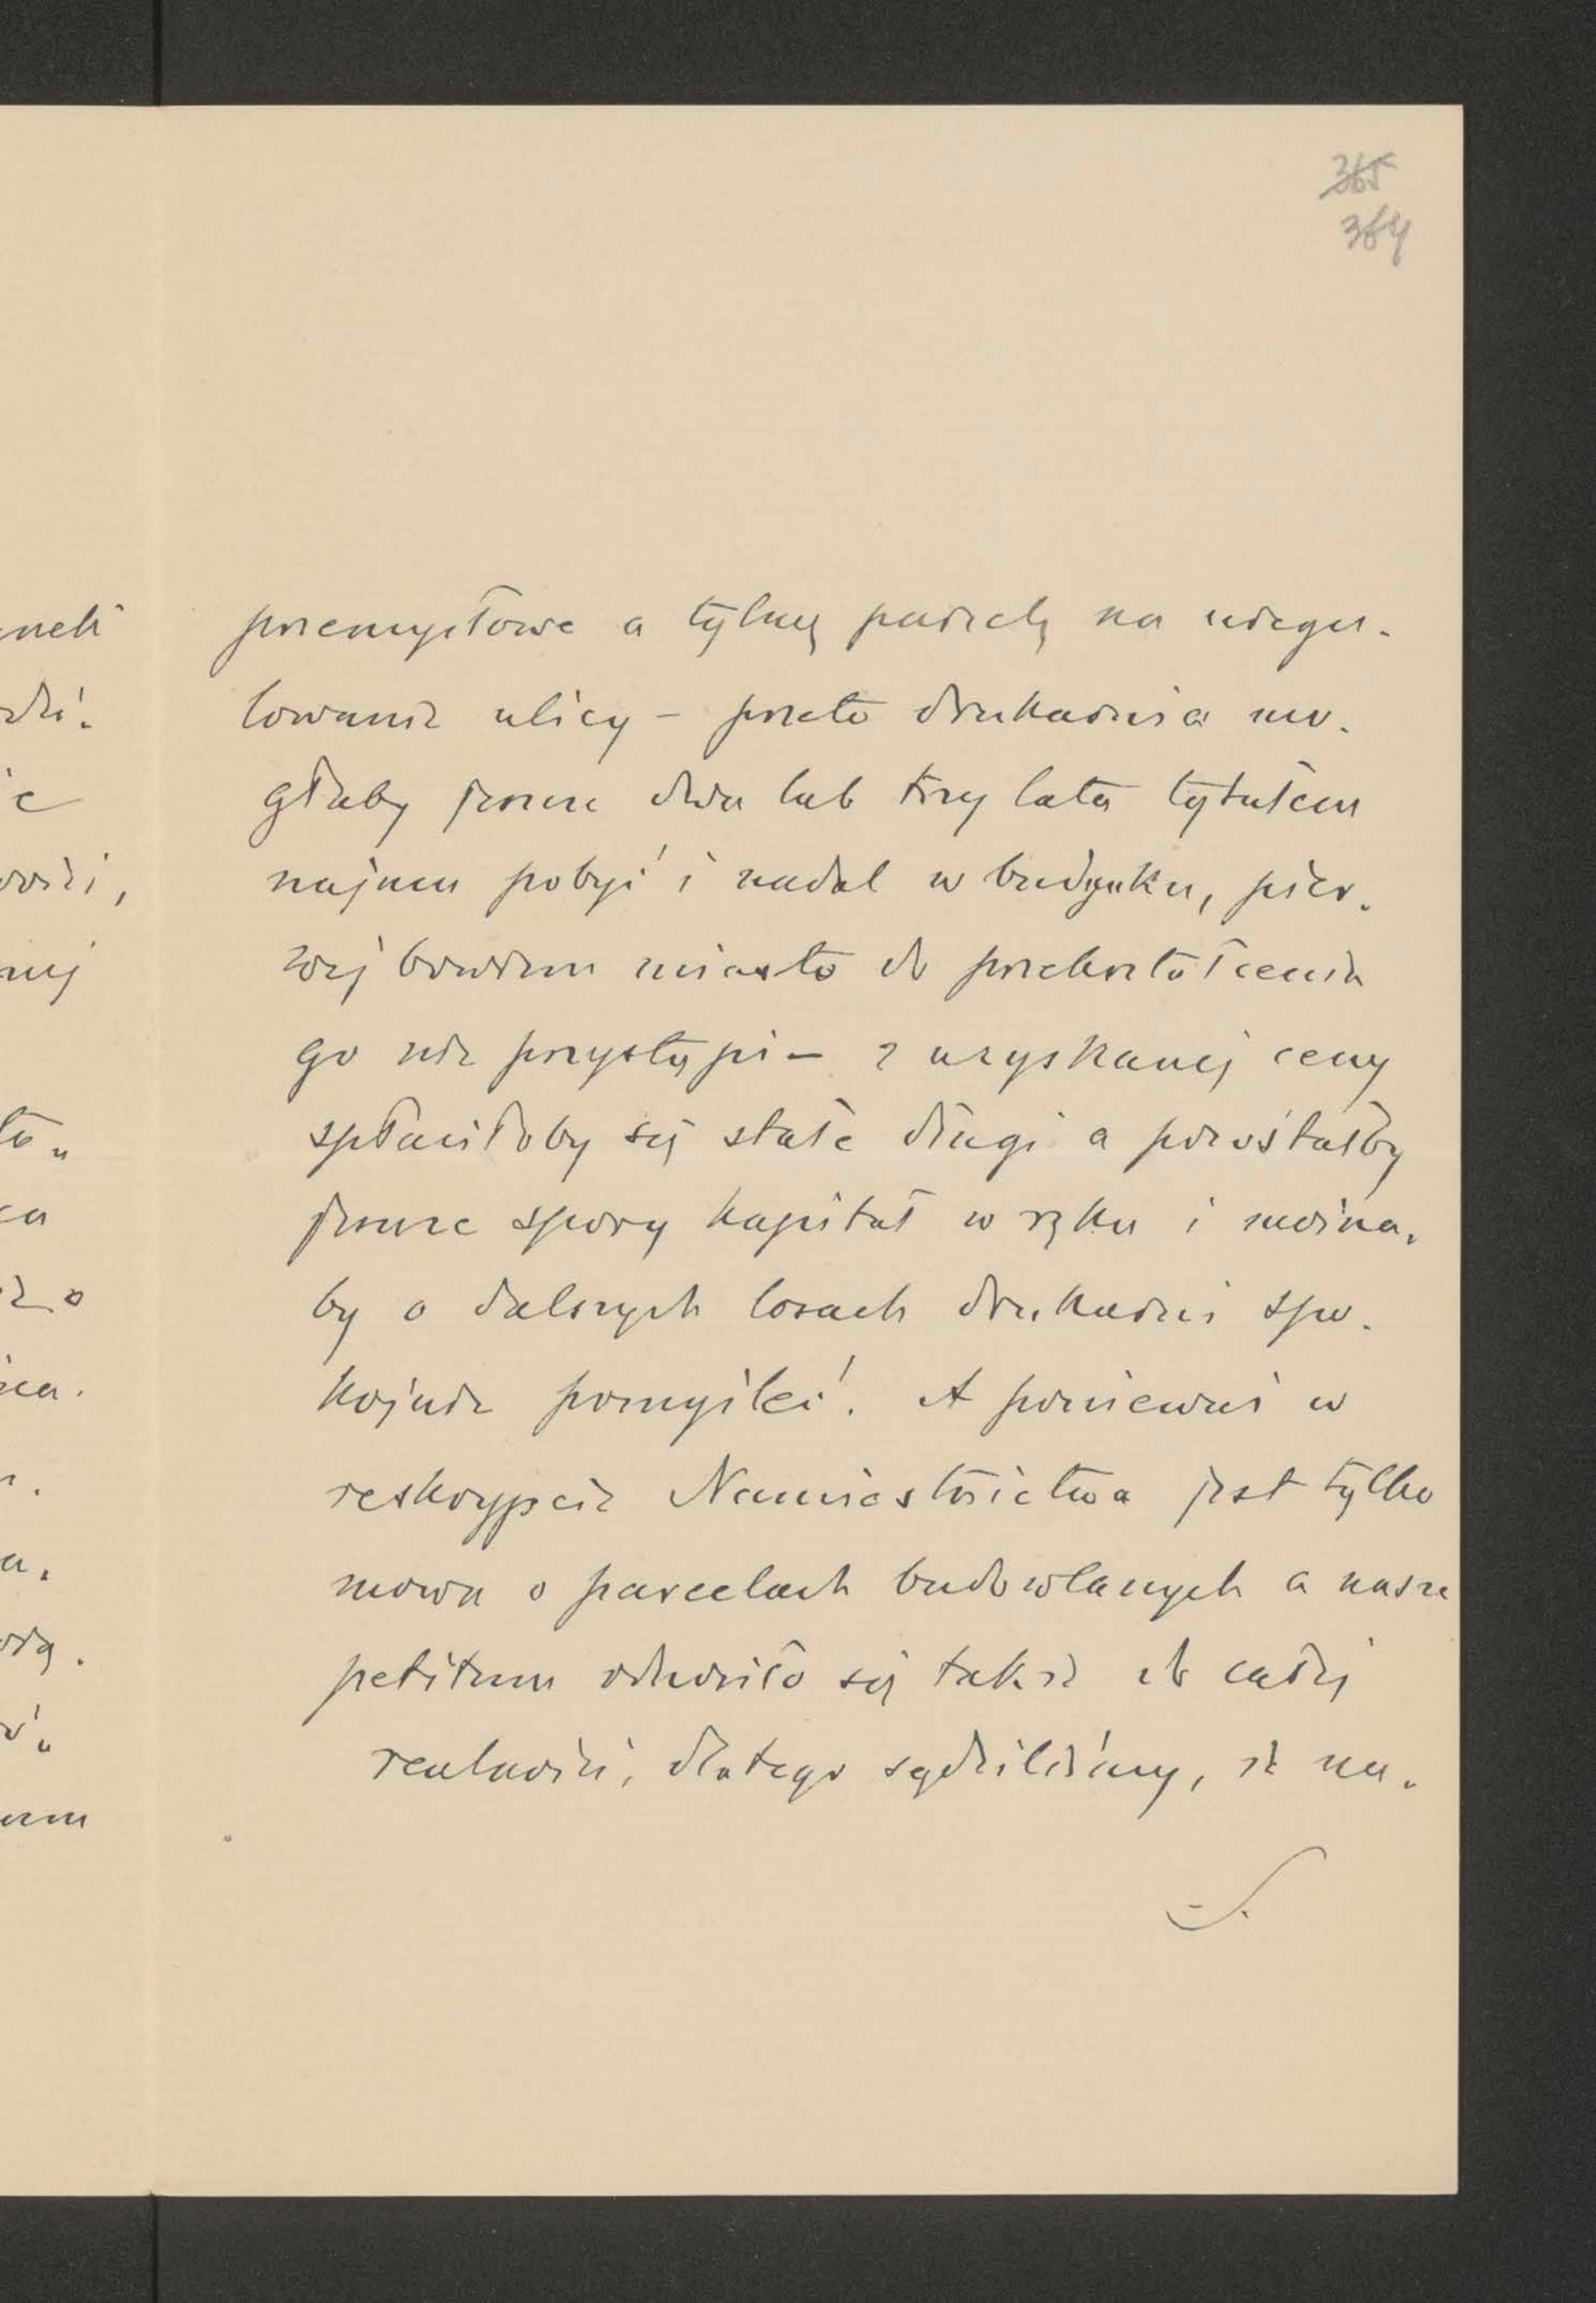 365
364
przemysłowe a tylną parcelę na uregu-
lowanie ulicy – przeto drukarnia mo-
głaby jeszcze dwa lub trzy lata tytułem
najmu pobyć i nadal w budynku, pier-
wej bowiem miasto do przekształcenia
go nie przystąpi – z uzyskanej ceny
spłaciłoby się stałe długi a pozostałby
jeszcze spory kapitał w ręku i można-
by o dalszych losach drukarni spo-
kojnie pomyśleć. A ponieważ w
reskrypcie Namiestnictwa jest tylko
mowa o parcelach budowlanych a nasze
petitum odnosiło się także do całej
realności, dlatego sądziliśmy, że na-